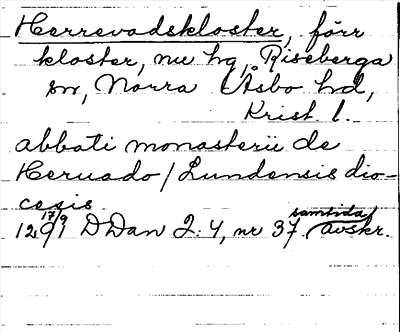 Herrevadskloster, förr
kloster, nu hg, Riseberga
sn, Norra Åsbo hd,
Krist. l.
abbati monasterii de
Heruado / Lundensis dio-
cesis
17/9 samtida
1291 DDan 2:4, nr 37. avskr.